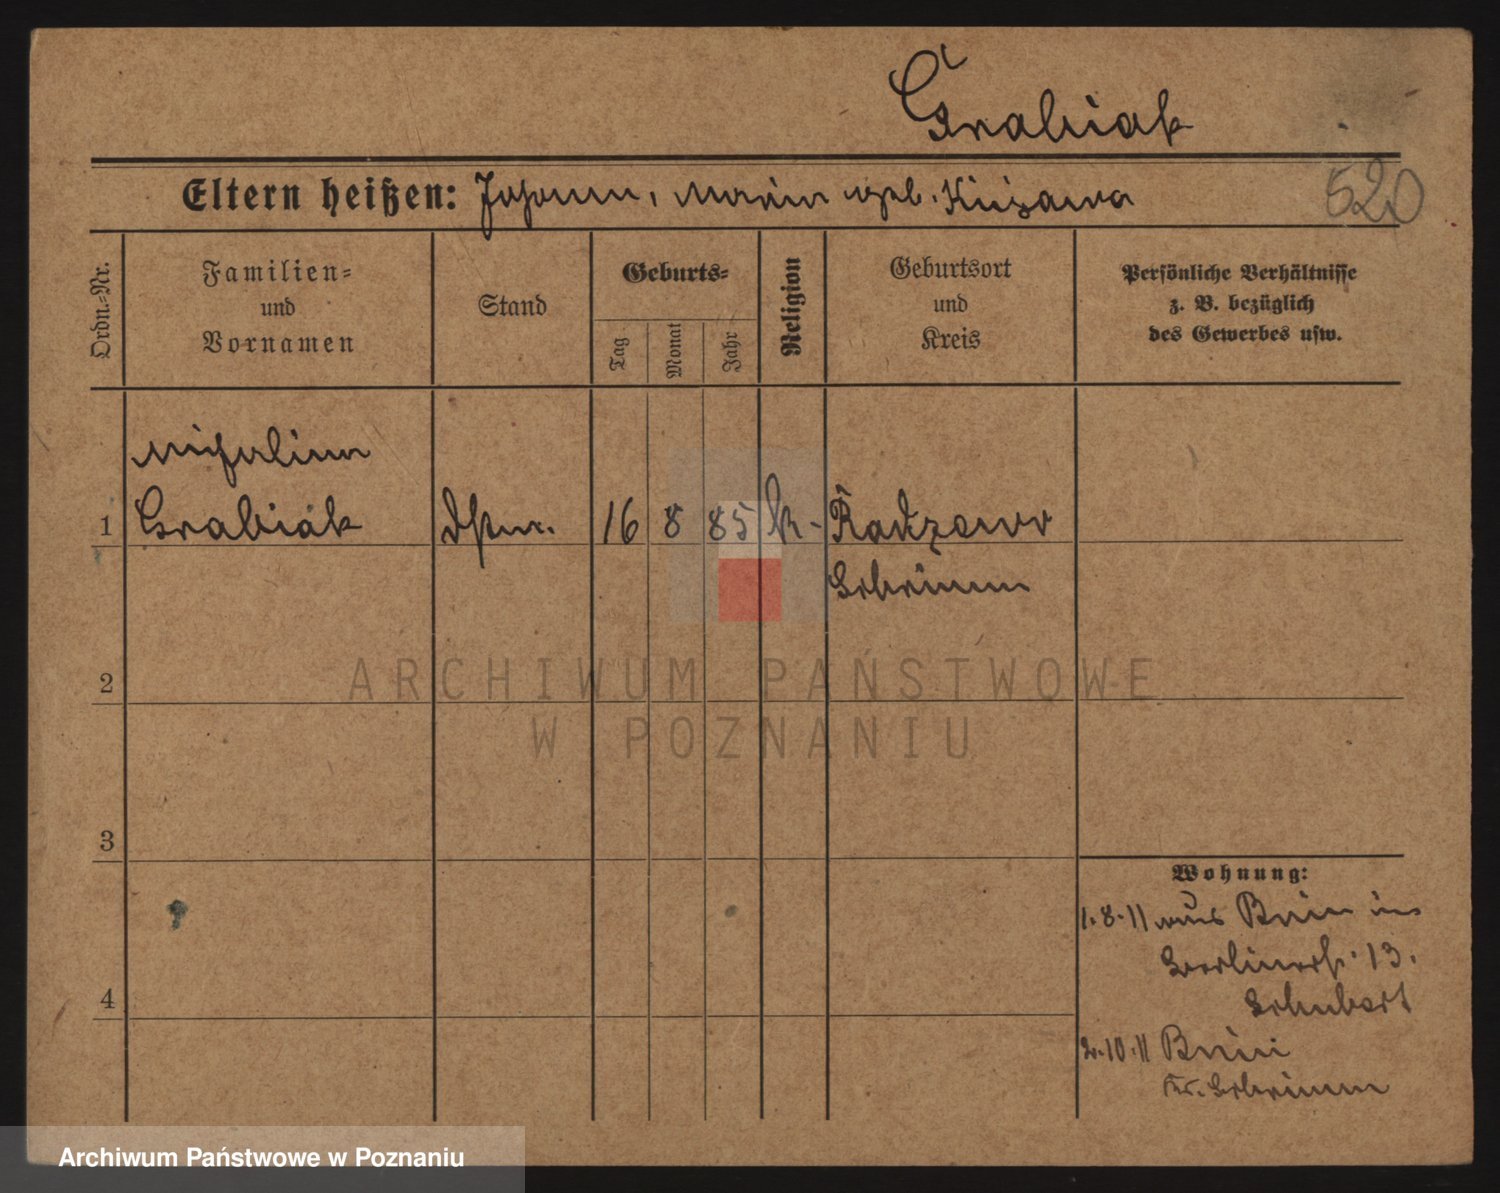 Grabiak
Eltern heißen: Johann, Maria geb. Kujawa
520
Ordn.-Nr.
Familien-
und
Vornamen
Stand
Geburts-
Tag
Monat
Jahr
Religion
Geburtsort
und
Kreis
Persönliche Verhältnisse
z. B. bezüglich
des Gewerbes usw.
Michalina
1 Grabiak 16 8 85 k. Radzewo
Schrimm
2
ARCHIWUM PAŃSTWOWE
W POZNANIU
3
Wohnung:
1.8.11 aus Bnin in
Berlinerstr. 13.
Schubert
4
2.10.11 Bnin
Kr. Schrimm
Archiwum Państwowe w Poznaniu